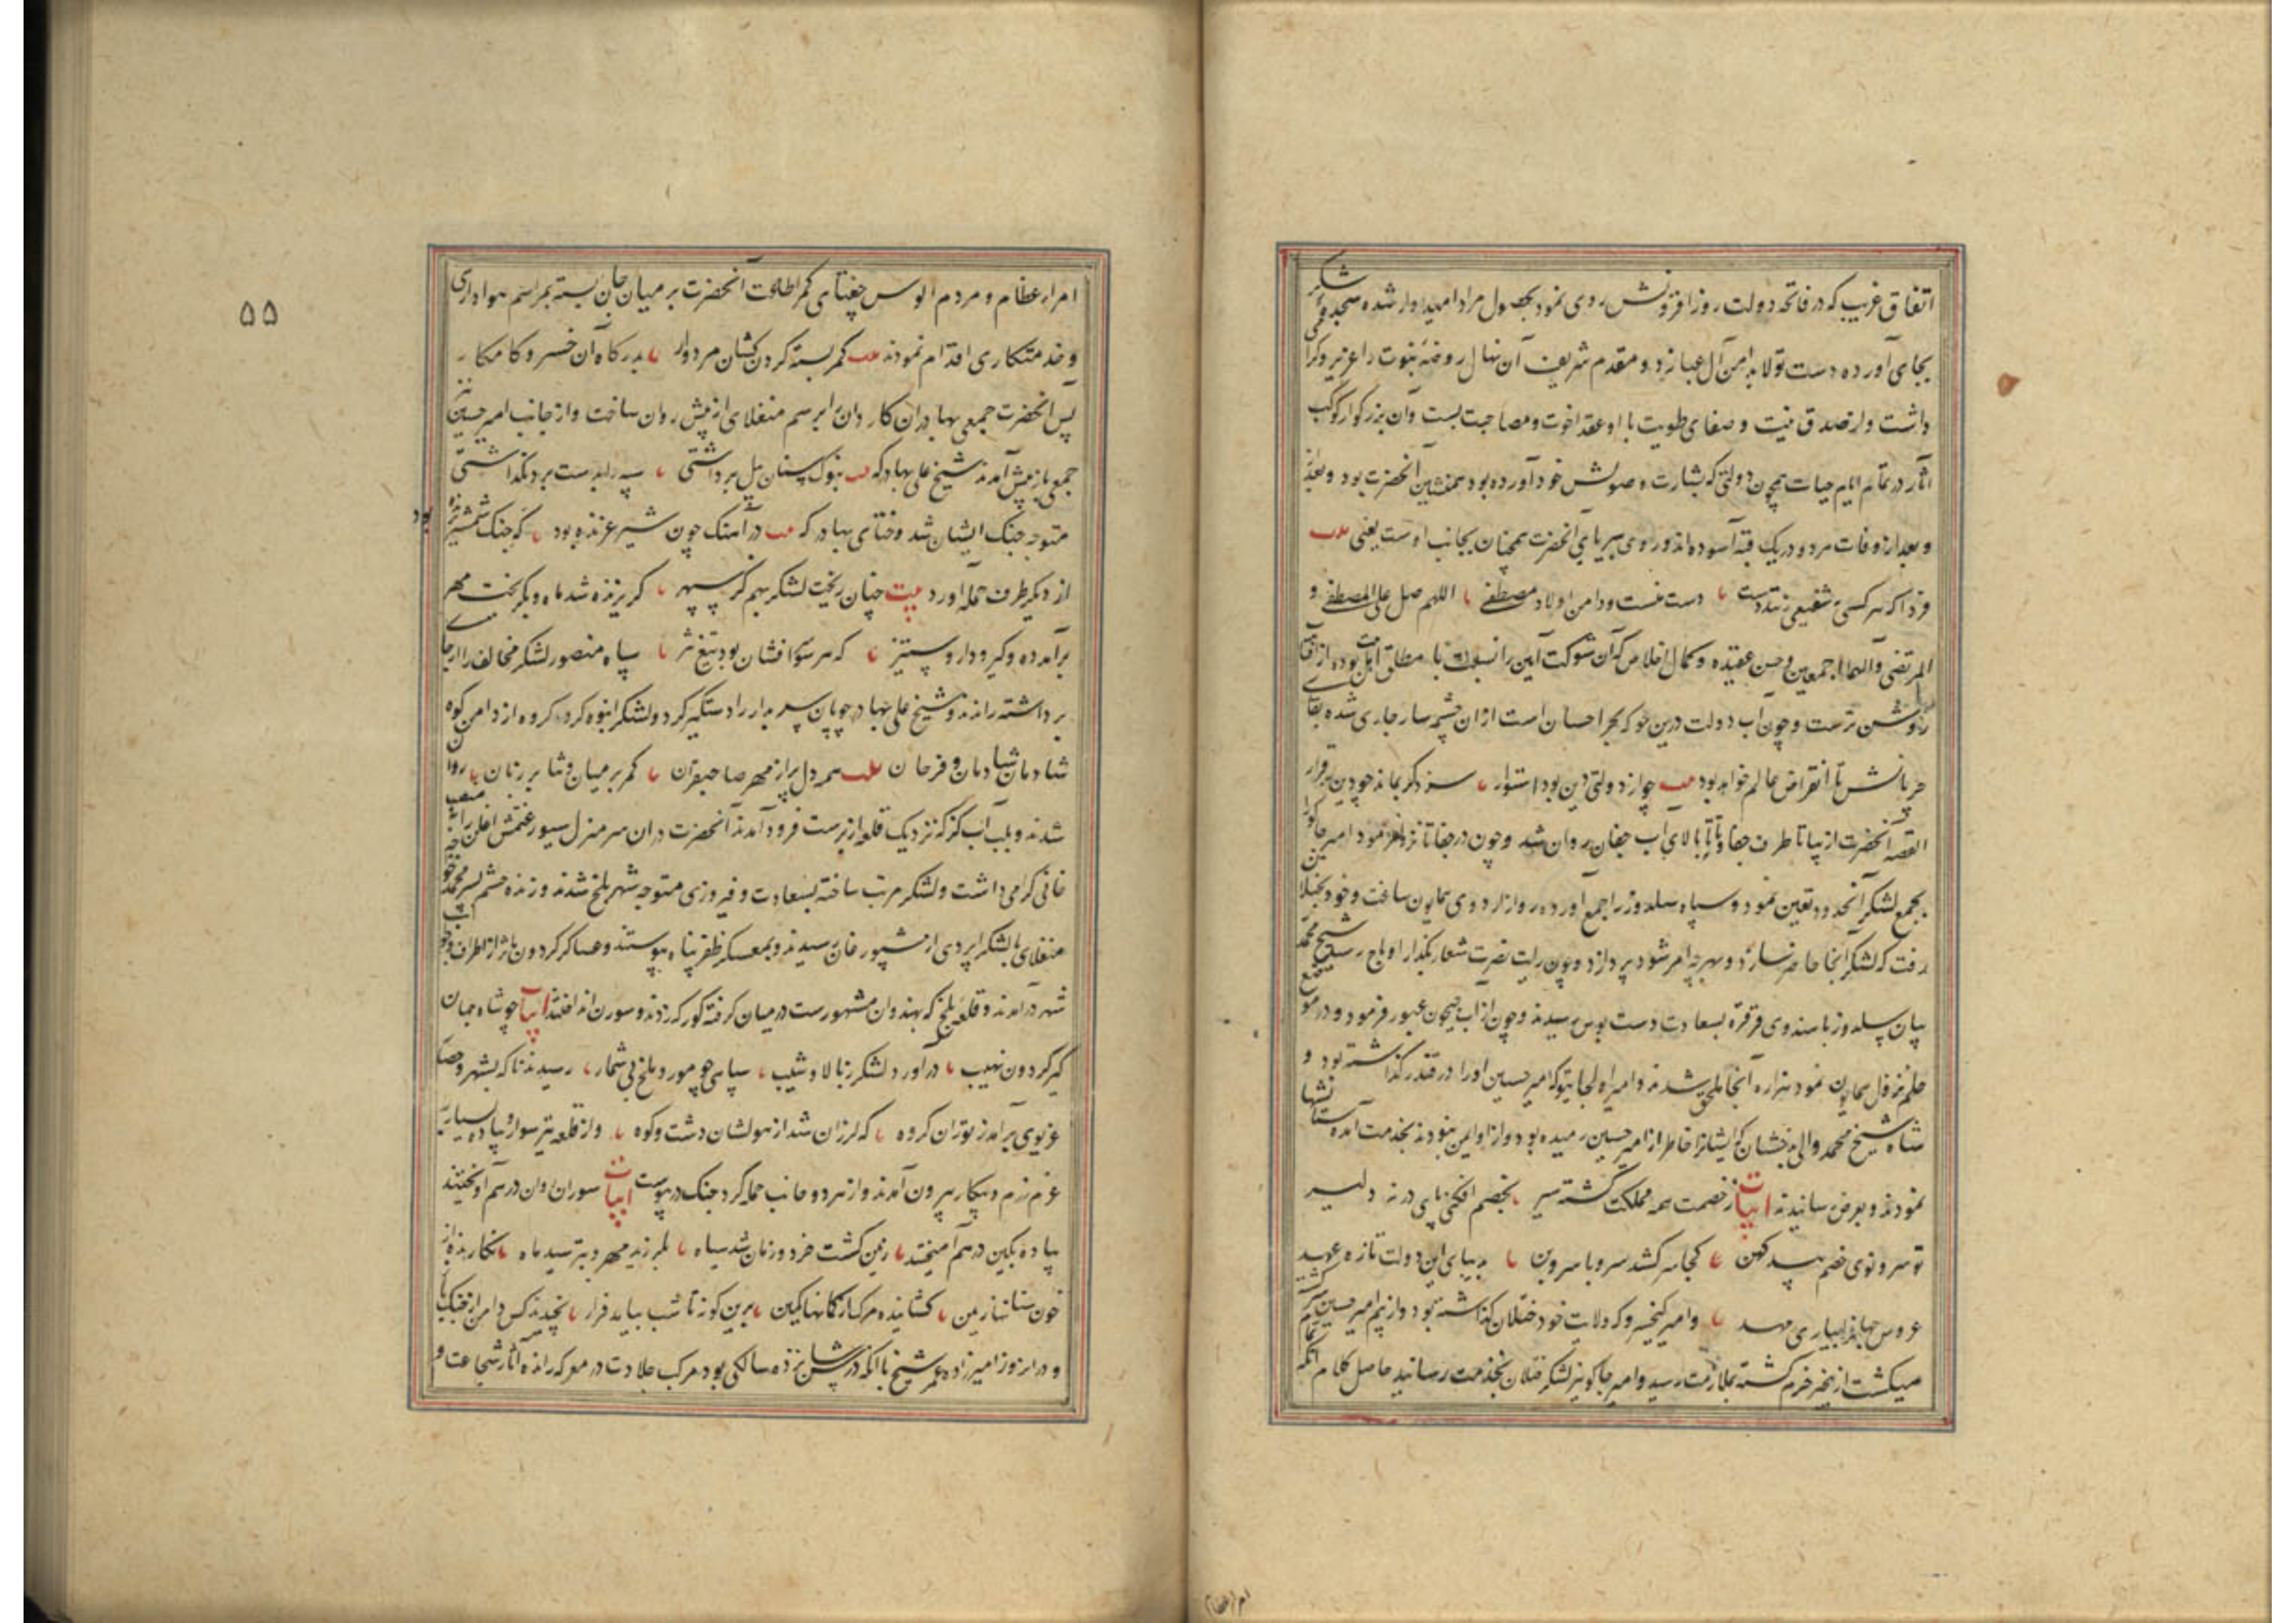 اتفاق غریب که در فاتحه دولت روزافزونش روی نمود بحصول مراد امیدوار شده سجده شکر
بجای آورده دست تولا بدامن آل عبا زد و مقدم شریف آن نهال روضهٔ نبوت را عزیز و گرامی
داشت و از صدق نیت و صفای طویت با او عقد اخوت و مصاحبت بست و آن بزرگوار کوکب
آثار در تمام ایام حیات همچون دولتی که بشارت وصولش خود آورده بود همنشین آنحضرت بود
و بعد از وفات هر دو در یک قبه آسوده‌اند و روی بی‌ریای آنحضرت همچنان بجانب اوست یعنی
فردا که هر کسی بشفیعی زنند دست دست منست و دامن اولاد مصطفی اللهم صل علی المصطفی و
المرتضی و آلهما اجمعین و حسن عقیده و کمال اخلاص که آن شوکت آیین را نسبت با مطلق اهل بیت بوده از آفتاب
روشن‌ترست و چون آب دولت درین جو که بحر احسان است ازان چشمه‌سار جاری شده بقای
جریانش تا انقراض عالم خواهد بود چو از دولتی دین بود استوار سزد گر بماند چو دین برقرار
القصه آنحضرت از بیا تا طرف جغانا بالای آب جغان روان شد و چون در جغانا نزول فرمود امیر جاکو را
بجمع لشکر آنحدود تعین نمود و سپاه سلدوز را جمع آورده روانهٔ اردوی همایون ساخت و خود بختلان
رفت که لشکر آنجا حاضر سازد و بهرچه امر شود پردازد و چون رایت نصرت شعار بگذار اوباج رسید شیخ محمد
بیان سلدوز با هندوی قرقره بسعادت دست بوس رسیدند و چون از آب جیحون عبور فرمود و در موضع
خلم نزول همایون نمود هزاره آنجا ملحق شدند و امیر اولجایتو که امیر حسین او را در قندز گذاشته بود و
شاه شیخ محمد والی بدخشان که ایشانرا خاطر از امیر حسین رمیده بود و از او ایمن نبودند بخدمت آمده آستانها
نمودند و بعرض رسانیدند ابیات ز خصمت همه مملکت گشته سیر بخصم افکنی پای در نه دلیر
تو سرو نوی خصم بید کهن کجا سر کشد سرو با سروبن بدیبای این دولت تازه عهد
عروس جهانرا بیارای مهد و امیر کیخسرو که ولایت خود ختلان گذاشته بود و از بیم امیر حسین سرگشته
میگشت از بخیر خرم گشته بملازمت رسید و امیر جاکو نیز لشکر ختلان بخدمت رسانید حاصل کلام آنکه تمام
امراء عظام
۵۵
امراء عظام و مردم الوس جغتای کمر اطاعت آنحضرت بر میان جان بسته بمراسم هواداری
و خدمتکاری اقدام نمودند کمر بسته گردن‌کشان مردوار بدرگاه آن خسرو کامکار
پس آنحضرت جمعی بهادران کاردان را برسم منغلای از پیش روان ساخت و از جانب امیر حسین نیز
جمعی باز پیش آمدند شیخ علی بهادر که بنوک سنان پیل برداشتی سپه را بدست برد نگذاشتی
متوجه جنک ایشان شد و ختای بهادر که در آهنگ چون شیر غرنده بود که جنک شمشیر برنده بود
از دیگر طرف حمله آورد بیت چنان ریخت لشکر بهم گرد سپهر گریزنده شد ماه و بگریخت مهر
برآمده و گیر و دار و ستیز که هر سو افشان بود تیغ تیز سپاه منصور لشکر مخالف را از جای
برداشته راندند و شیخ علی بهادر چوپان سربدار را دستگیر کرد و لشکر انبوه گروه گروه از دامن کوه
شادمان شادمان و فرحان همه دل پر از مهر صاحبقران کمر بر میان و ثنا بر زبان روان
شدند و بلب آب گز که نزدیک قلعه از برست فرود آمدند آنحضرت در آن سر منزل سیورغتمش اغلن را بمنصب
خانی گرامی داشت و لشکر مرتب ساخته بسعادت و فیروزی متوجه شهر بلخ شدند و زنده حشم پسر محمد خواجه
منغلای با لشکر اپردی از شپورغان رسیدند و بمعسکر ظفر پناه پیوستند و عساکر گردون مآثر از اطراف و جوانب
شهر درآمدند و قلعه بلخ که بهندوان مشهورست در میان گرفته گورکه زدند و سورن انداختند ابیات چو شاه جهان
گیر گردون نهیب درآورد لشکر ز بالا و شیب سپاهی چو مور و ملخ بی‌شمار رسیدند ناگه بشهر و حصار
غریوی برآمد ز توران گروه که لرزان شد از هولشان دشت و کوه و از قلعه نیز سوار و پیاده بسیار بـ
عزم رزم و پیکار بیرون آمدند و از هر دو جانب حمله کرد جنک در پیوست ابیات سواران دران درهم آویختند
پیاده بکین درهم آمیختند زمین گشت خرد و زمان شد سیاه بلرزید مهر و بترسید ماه نگارنده از
خون سنانها زمین گشاینده مرگ از کمانها کمین برین گونه تا شب بیاید فراز نپیچید کس دامن از جنک باز
و دران روز امیرزاده عمر شیخ با آنکه در سن شانزده سالکی بود مرکب جلادت در معرکه رانده آثار شجاعت و